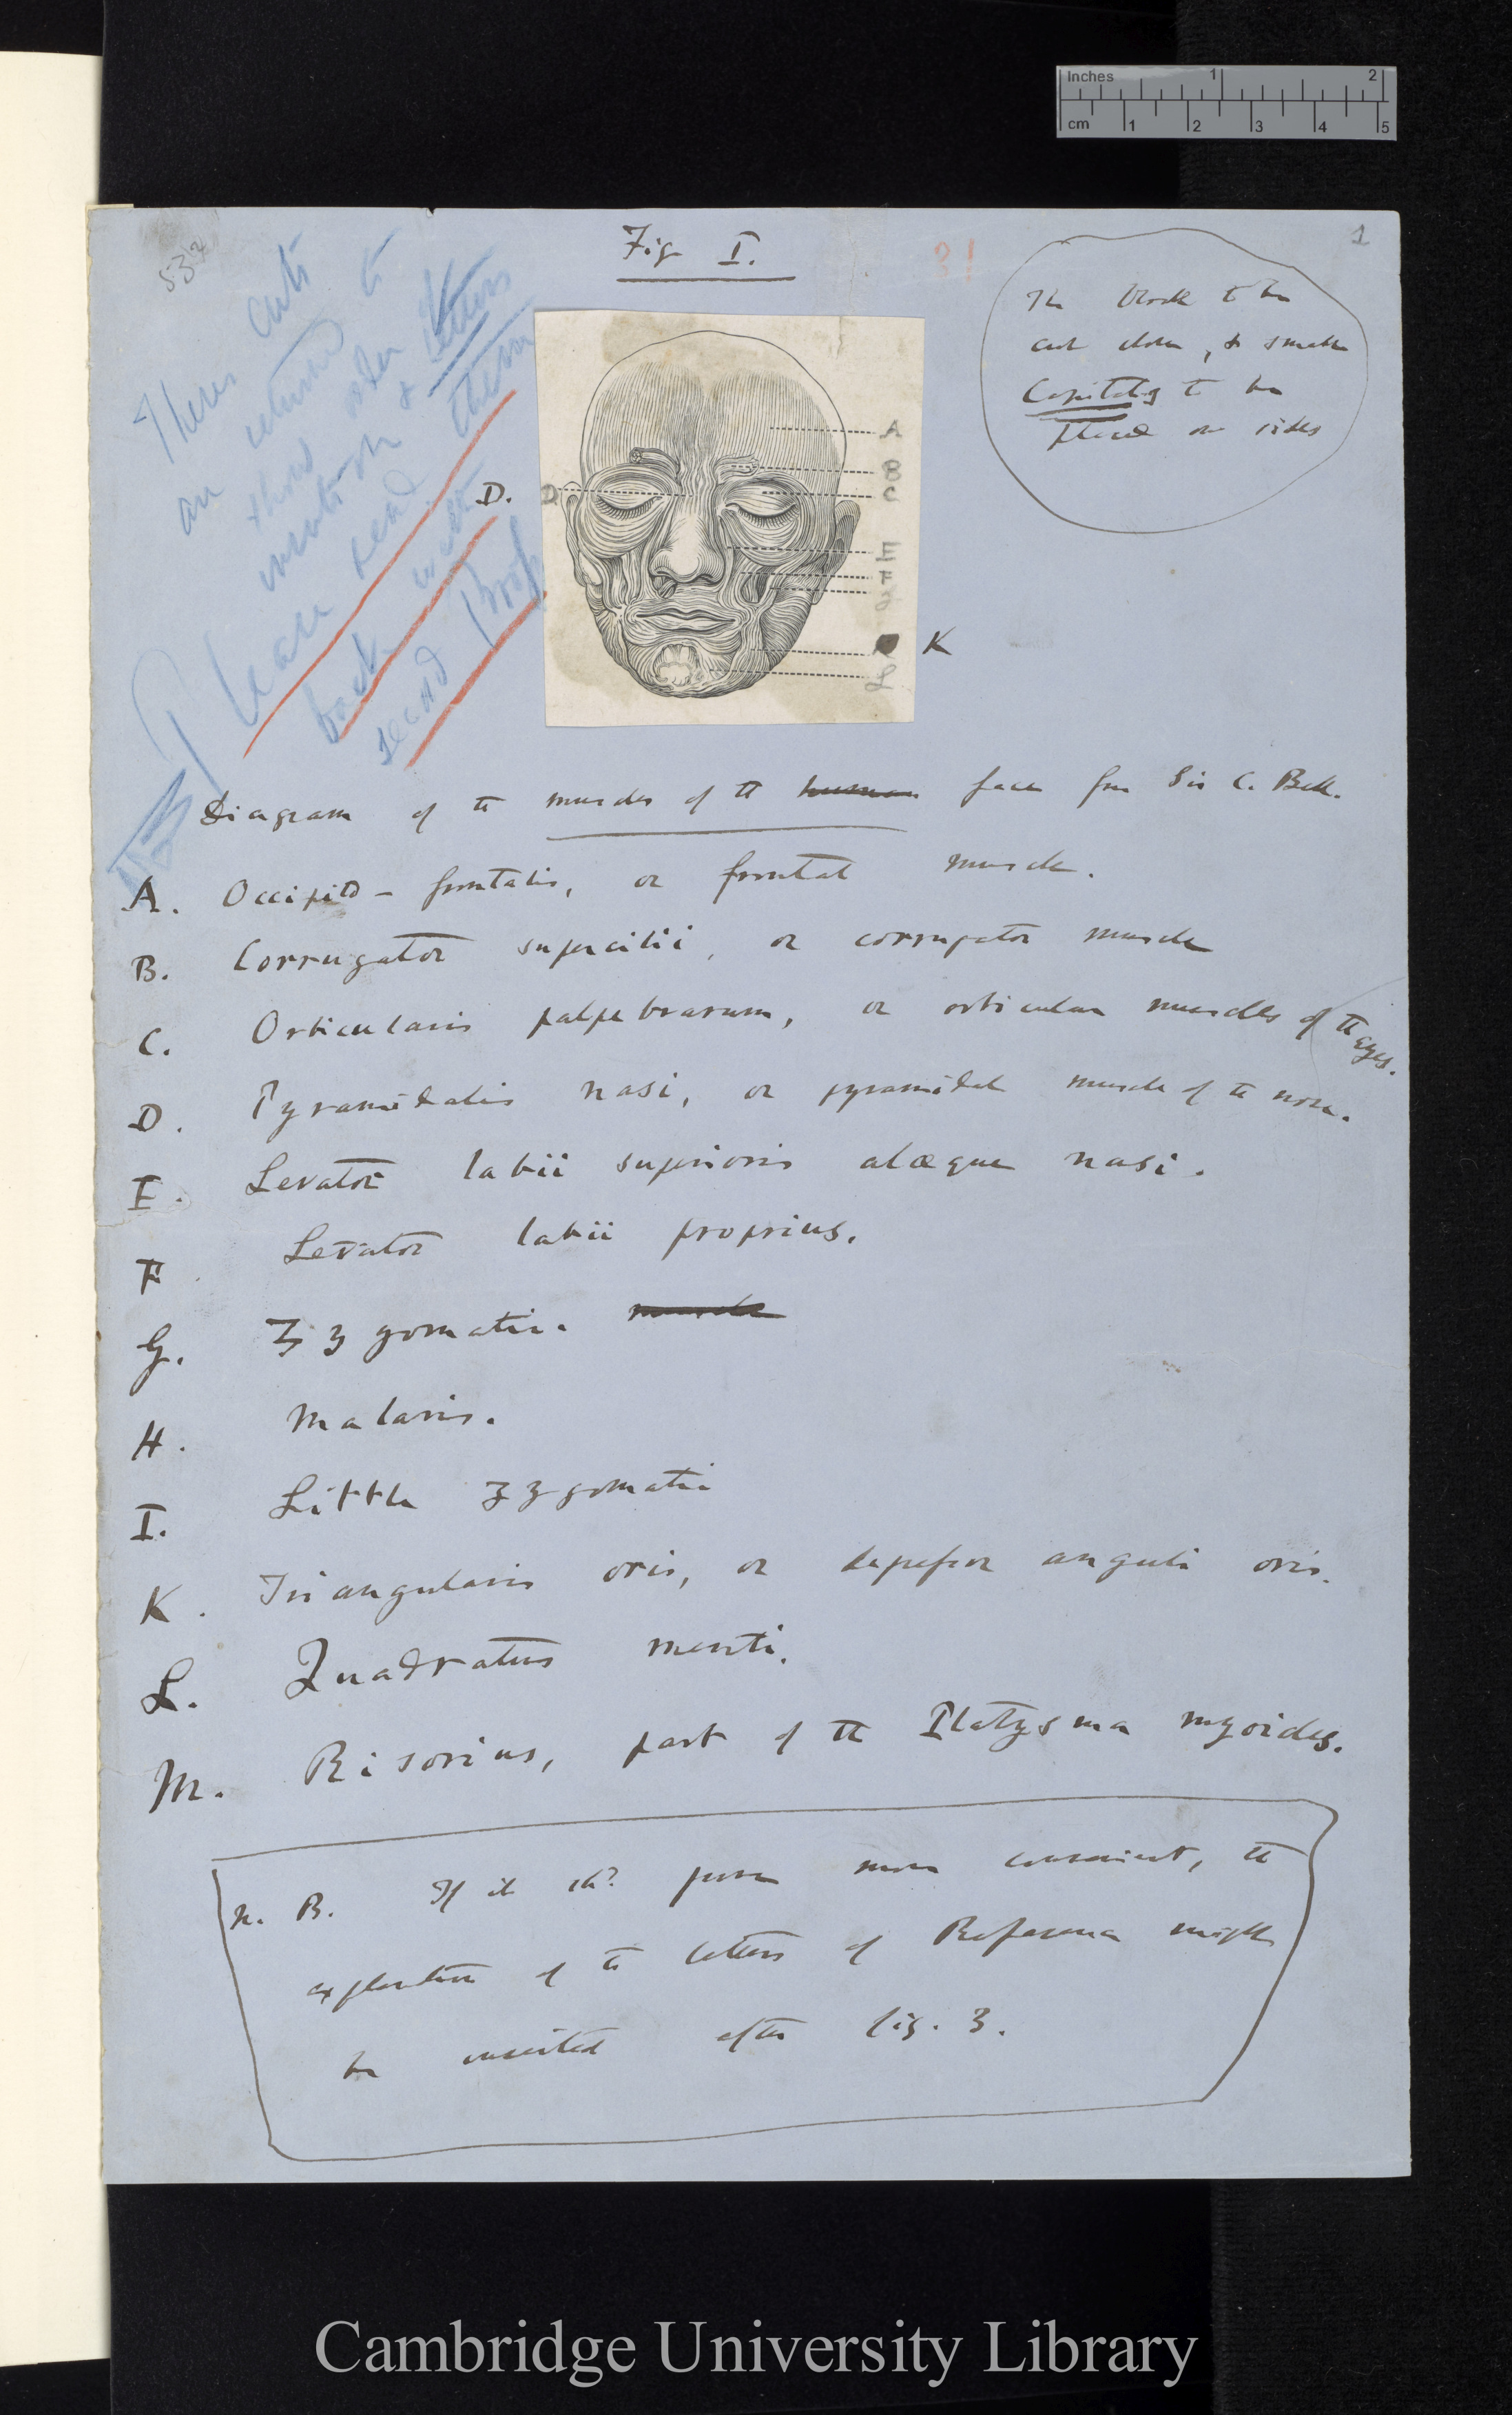 Inches 1 2
cm 1 2 3 4 5
532
Fig I.
31
1
The block to be
cut down, & small
Capitals to be
placed on sides
These cuts
are returned to
show order of
insertion & letters
Please send them
back with
second Proof
A
B
C
D. D
E
F
K
L
Diagram of the muscles of the human face from Sir C. Bell.
A. Occipito-frontalis, or frontal muscle.
B. Corrugator supercilii, or corrugator muscle
C. Orbicularis palpebrarum, or orbicular muscles of the eyes.
D. Pyramidalis nasi, or pyramidal muscle of the nose.
E. Levator labii superioris alæque nasi.
F Levator labii proprius.
G. Zygomatic. muscle
H. Malaris.
I. Little zygomatic
K. Triangularis oris, or depressor anguli oris.
L. Quadratus menti.
M. Risorius, part of the Platysma myoides.
N. B. If it shd. prove more convenient, the
explanation of the letters of Reference might
be inserted after fig. 3.
Cambridge University Library